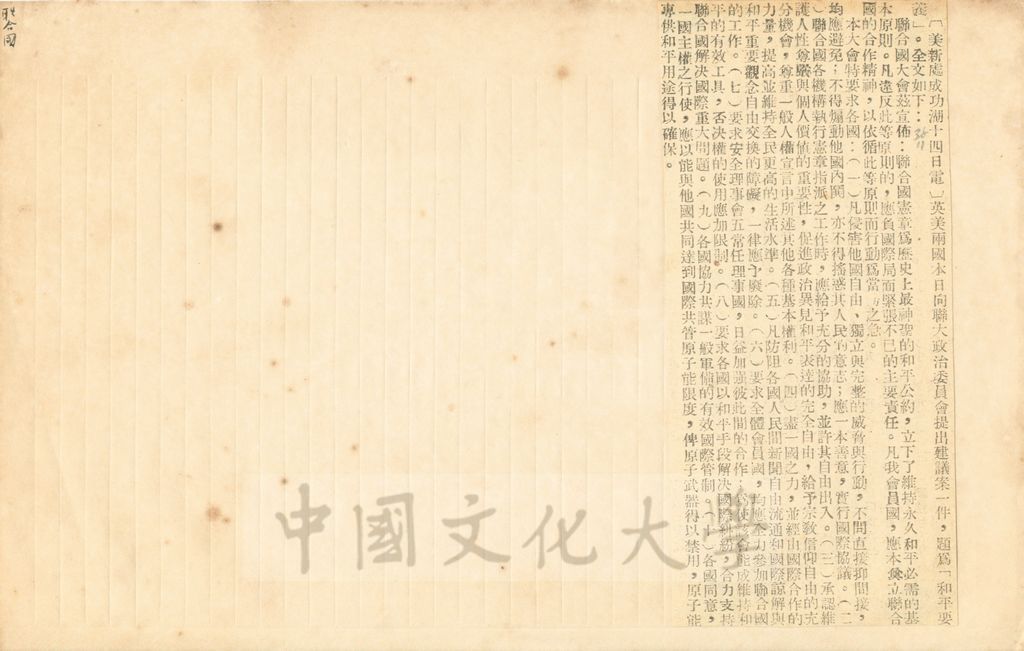 聯合國
〔美新處成功湖十四日電〕英美兩國本日向聯大政治委員會提出建議案一件，題爲「和平要
義」。全文如下：
聯合國大會茲宣佈：聯合國憲章爲歷史上最神聖的和平公約，立下了維持永久和平必需的基
本原則。凡違反此等原則的，應負國際局面緊張不已的主要責任。凡我會員國，應本奠立聯合
國的合作精神，以依循此等原則而行動爲當 之急。
本大會特要求各國：（一）凡侵害他國自由、獨立與完整的威脅與行動，不問直接抑間接，
均應避免；不得煽動他國內鬨，亦不得搖惑其人民的意志；應一本善意，實行國際協議。（二
）聯合國各機構執行憲章指派之工作時，應給予充分的協助，並許其自由出入。（三）承認維
護人性尊嚴與個人價値的重要性，促進政治異見和平表達的完全自由，給予宗敎信仰自由的充
分機會，尊重一般人權宣言中所述其他各種基本權利。（四）盡一國之力，並經由國際合作的
力量，提高並維持全民更高的生活水準。（五）凡防阻各國人民間新聞自由流通和國際諒解與
和平重要觀念自由交換的障礙，一律應予廢除。（六）要求全體會員國，均應全力參加聯合國
的工作。（七）要求安全理事會五常任理事國，日益加强彼此間的合作； 使該會能成維持和
平的有效工具，否決權的使用應加限制。（八）要求各國以和平手段解決國際糾紛，合力支持
聯合國解決國際重大問題。（九）各國協力共謀一般軍備的有效國際管制。（十）各國同意，
一國主權之行使，應以能與他國共同達到國際共管原子能限度，俾原子武器得以禁用，原子能
專供和平用途得以確保。
中國文化大學